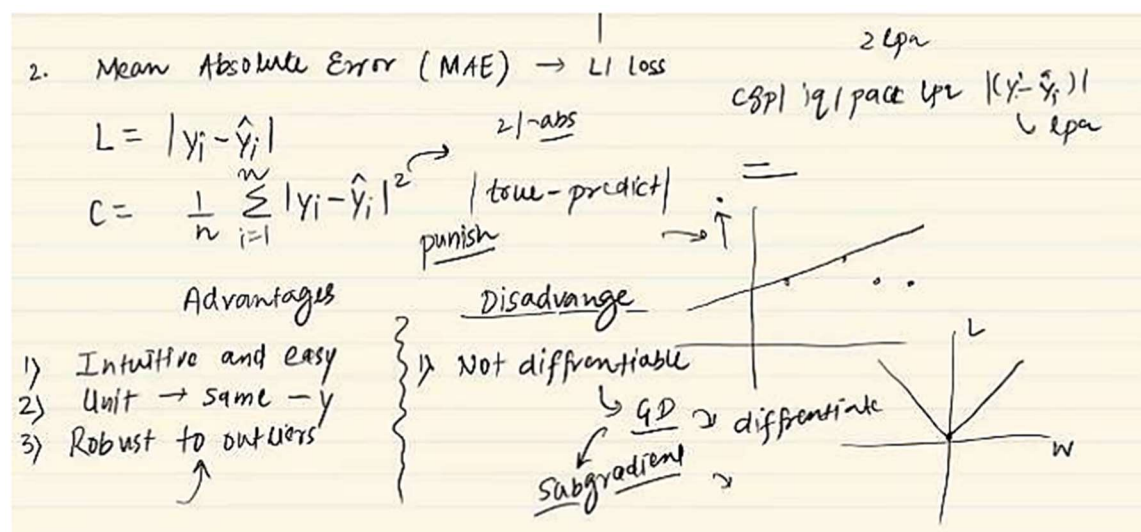 2. Mean Absolute Error (MAE) → L1 loss
2 lpa
cgpa | iq | pack lpa |(yi - ŷi)|
↳ lpa
L = |yi - ŷi|
2 | - abs
C = 1/n Σ i=1 n |yi - ŷi|²
|true - predict|
punish
Advantages
Disadvange
1) Intuitive and easy
2) Unit → same - y
3) Robust to outliers
1) Not diffrentiable
↳ GD → diffrentiate
Subgradient
L
W